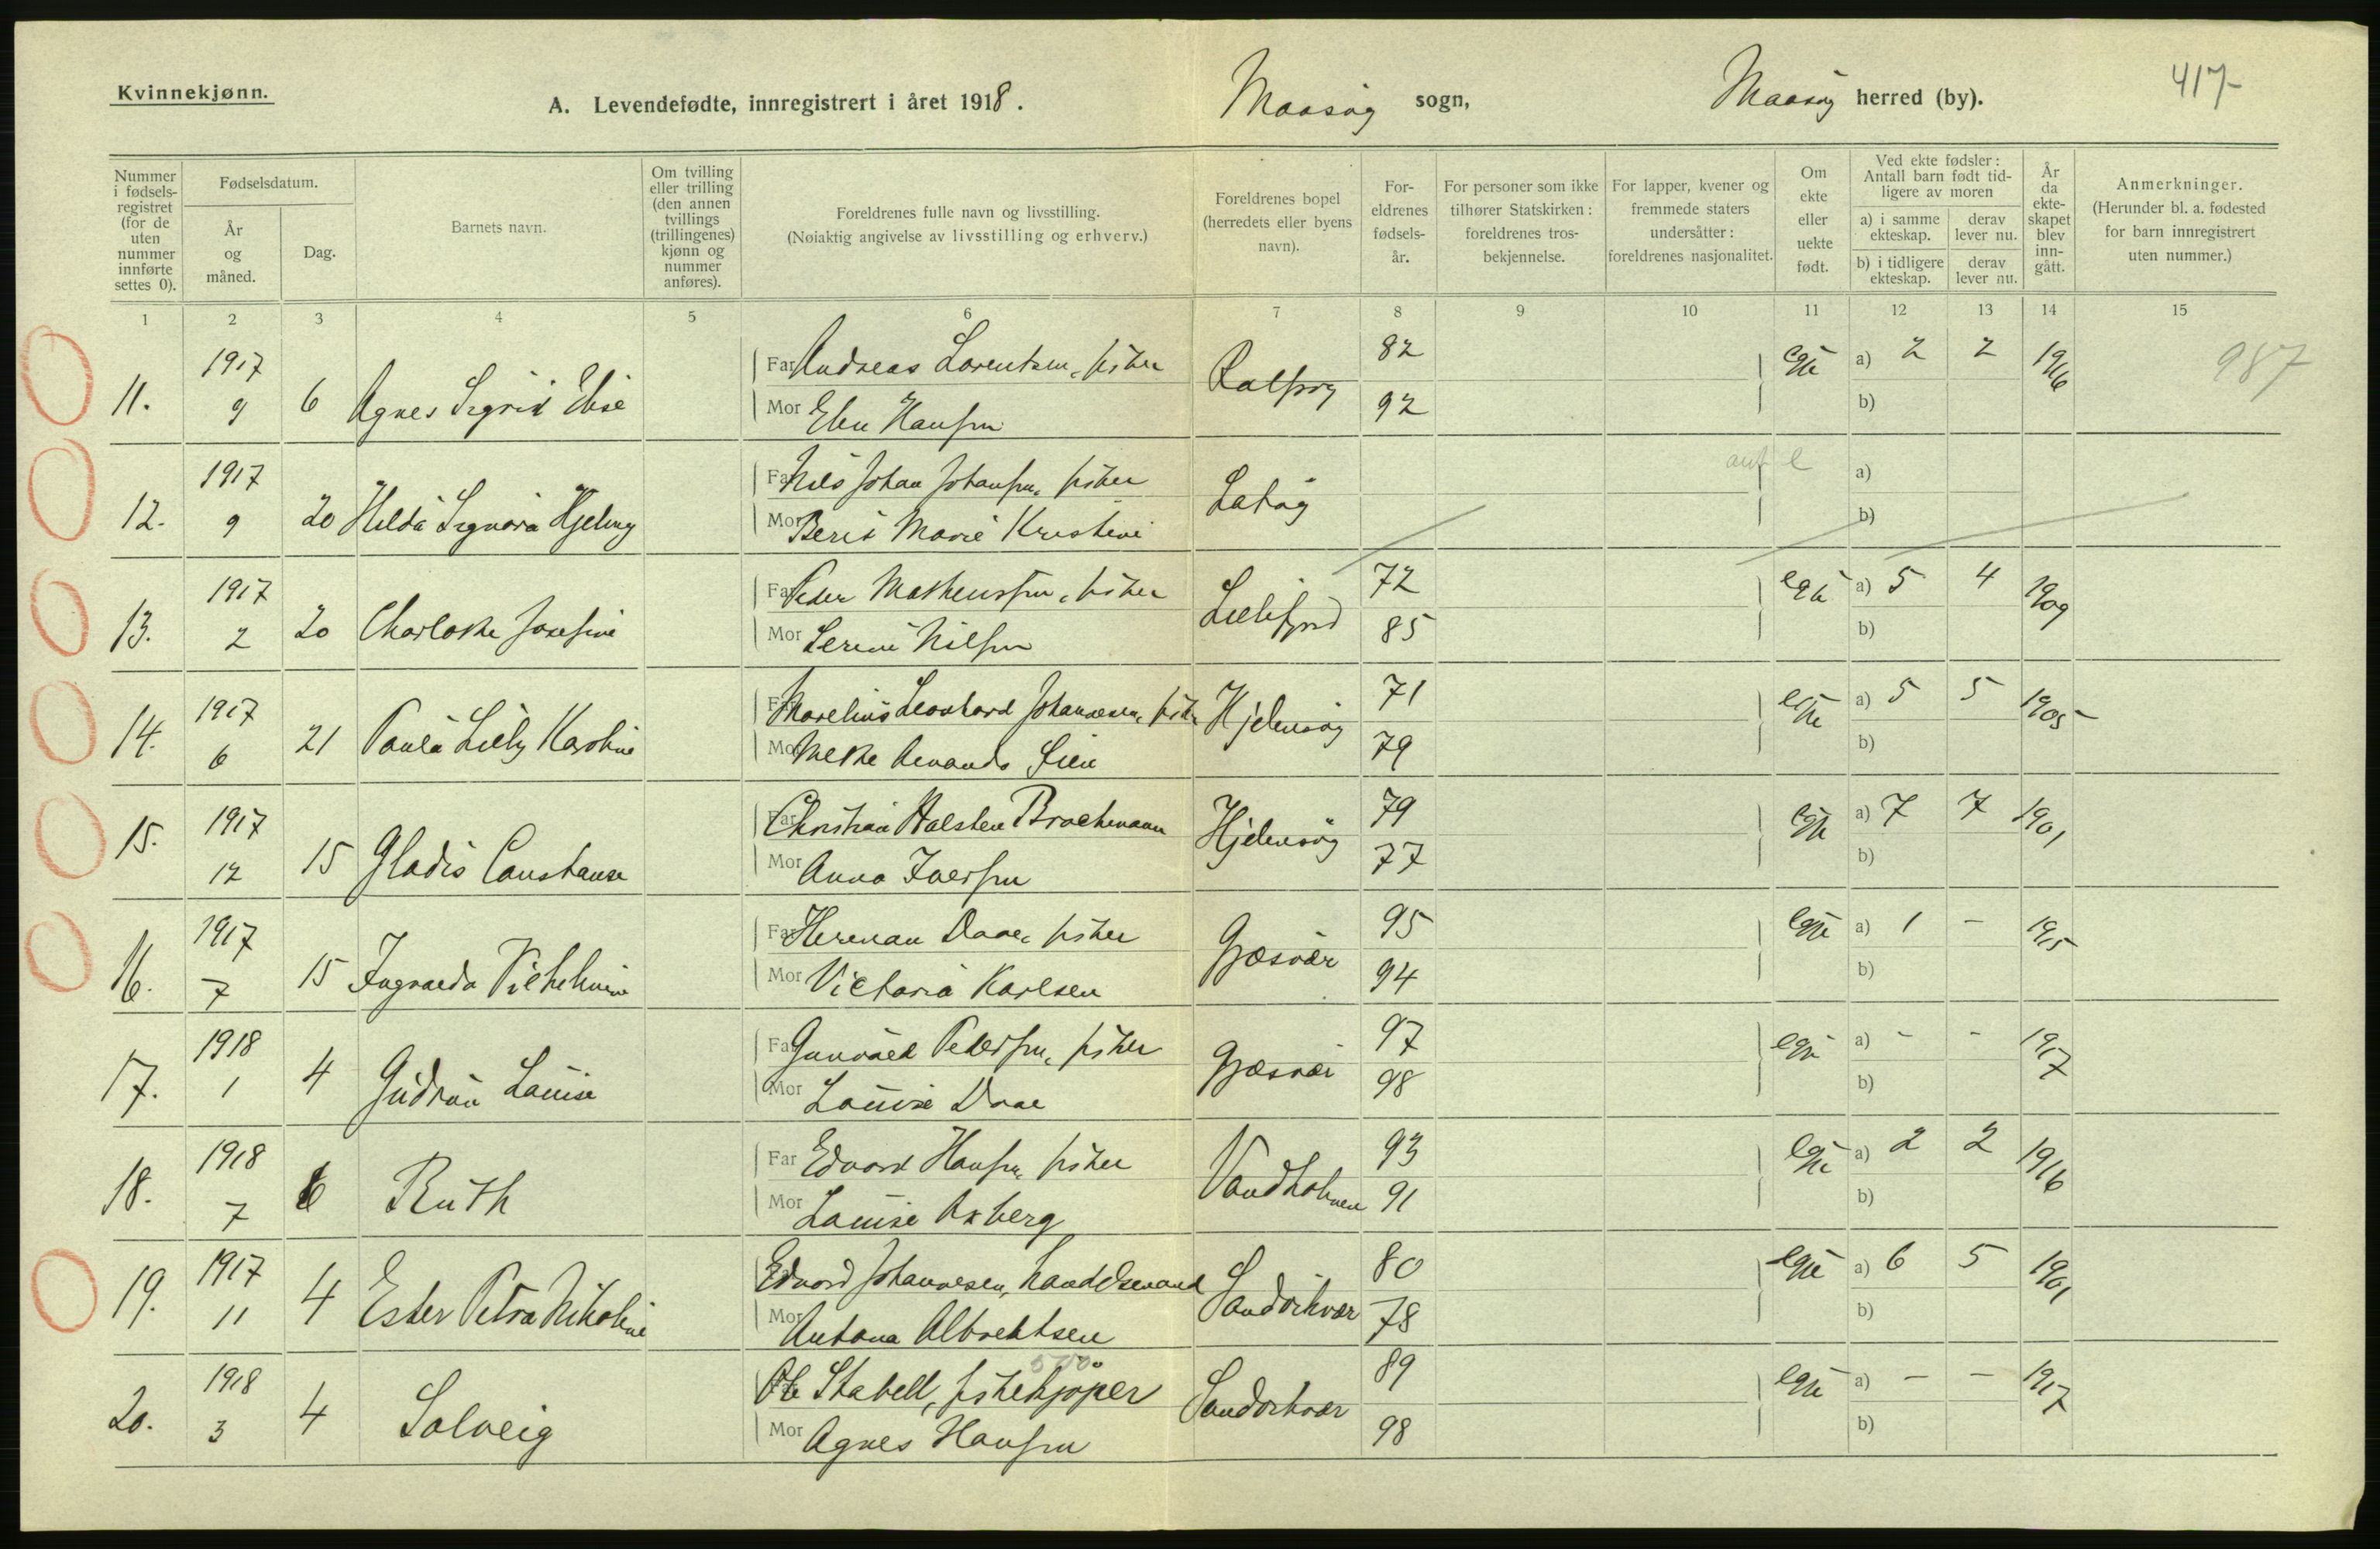 Kvinnekjønn.
A. Levendefødte, innregistrert i året 1918.
Maasøy sogn,
Maasøy herred (by).
417-
Nummer i fødselsregistret (for de uten nummer innførte settes 0).
Fødselsdatum.
År og måned.
Dag.
Barnets navn.
Om tvilling eller trilling (den annen tvillings (trillingenes) kjønn og nummer anføres).
Foreldrenes fulle navn og livsstilling.
(Nøiaktig angivelse av livsstilling og erhverv.)
Foreldrenes bopel (herredets eller byens navn).
Foreldrenes fødselsår.
For personer som ikke tilhører Statskirken: foreldrenes trosbekjennelse.
For lapper, kvener og fremmede staters undersåtter: foreldrenes nasjonalitet.
Om ekte eller uekte født.
Ved ekte fødsler: Antall barn født tidligere av moren
a) i samme ekteskap.
derav lever nu.
b) i tidligere ekteskap.
derav lever nu.
År da ekteskapet blev inngått.
Anmerkninger.
(Herunder bl. a. fødested for barn innregistrert uten nummer.)
1 2 3 4 5 6 7 8 9 10 11 12 13 14 15
11. 1917 9 6 Agnes Sigrid Elise
Far Andreas Lorentsen, fisker 82 egte a) 2 2 1916 987
Mor Elen Hansen 92 b)
12. 1917 9 20 Hilda
Far Nils Johan Johansen, fisker a)
Mor Berit Marie Kristine b)
13. 1917 2 20 Charlotte Josefine
Far Peder Matheussen, fisker Lillefjord 72 egte a) 5 4 1909
Mor Serine Nilsen 85 b)
14. 1917 6 21 Paula Lilly Karoline
Far Marelius Leonhard Johannesen, fisker Hjelmsøy 71 egte a) 5 5 1905
Mor Mette Amanda 79 b)
15. 1917 12 15 Gladis Constanse
Far Christian Halsten Brochmann Hjelmsøy 79 egte a) 7 7 1901
Mor Anna Iversen 77 b)
16. 1917 7 15 Ingvarda Vilhelmine
Far Herman Daae, fisker Gjæsvær 95 egte a) 1 - 1915
Mor Victoria Karlsen 94 b)
17. 1918 1 4 Gudrun Louise
Far Gunvald Pedersen, fisker Gjæsvær 97 egte a) - - 1917
Mor Louise Daae 98 b)
18. 1918 7 6 Ruth
Far Edvard Hansen, fisker Vandholmen 93 egte a) 2 2 1916
Mor Louise Axberg 91 b)
19. 1917 11 4 Ester Petra Nikoline
Far Edvard Johannesen, handelsmand 80 egte a) 6 5 1901
Mor Antona Albrektsen 78 b)
20. 1918 3 4 Solveig
Far Ole Stabell, fiskekjøper 89 egte a) - - 1917
Mor Agnes Hansen 98 b)